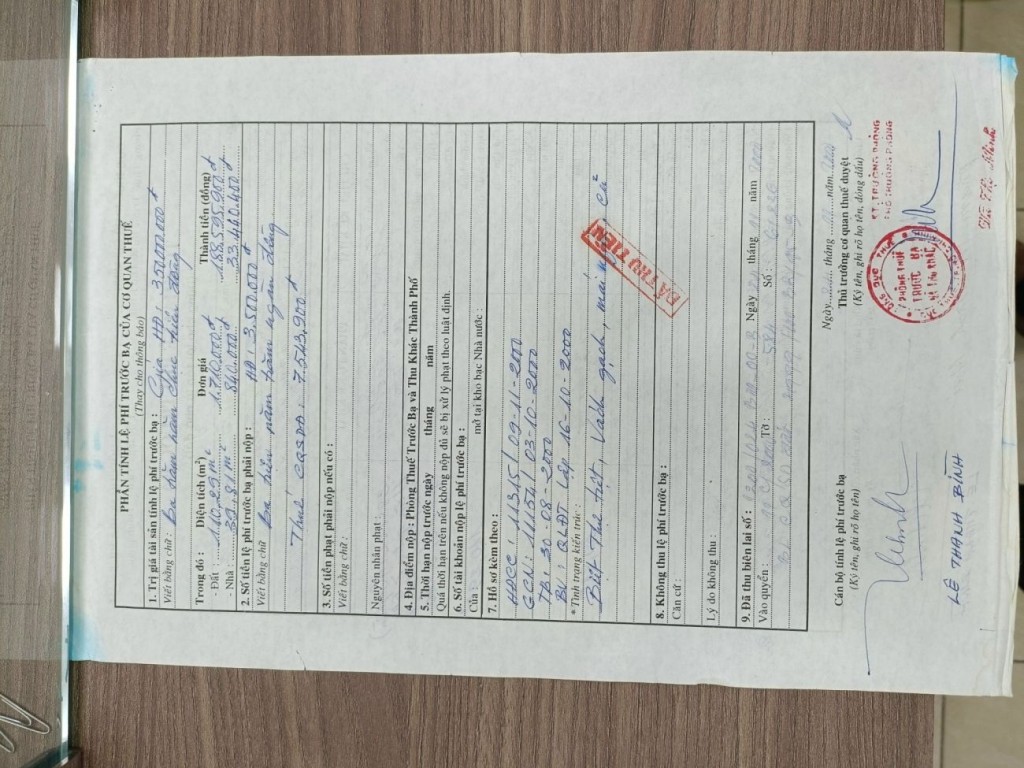 PHẦN TÍNH LỆ PHÍ TRƯỚC BẠ CỦA CƠ QUAN THUẾ
(Thay cho thông báo)
1. Trị giá tài sản tính lệ phí trước bạ : Của HĐ : 350.000.000 đ
Viết bằng chữ : Ba trăm năm chục triệu đồng
Trong đó : Diện tích (m²) Đơn giá Thành tiền (đồng)
- Đất : 110,29 m² 1.710.000 đ 188.595.900 đ
- Nhà : 39,81 m² 840.000 đ 33.440.400 đ
2. Số tiền lệ phí trước bạ phải nộp : HĐ : 3.500.000 đ
Viết bằng chữ Ba triệu năm trăm ngàn đồng
Thuế CQSDĐ : 7.543.900 đ
3. Số tiền phạt phải nộp nếu có :
Viết bằng chữ :
Nguyên nhân phạt :
4. Địa điểm nộp : Phòng Thuế Trước Bạ và Thu Khác Thành Phố
5. Thời hạn nộp trước ngày tháng năm
Quá thời hạn trên nếu không nộp đủ sẽ bị xử lý phạt theo luật định.
6. Số tài khoản nộp lệ phí trước bạ :
Của : mở tại kho bạc Nhà nước :
7. Hồ sơ kèm theo :
HĐCC : 11315 / 09-11-2000
GCN : 11154 / 03-10-2000
TB : 30-08-2000
BV : QLĐT lập 16-10-2000
* Tình trạng kiến trúc :
Biệt Thự trệt, Vách gạch, mái ngói, cũ
ĐÃ THU TIỀN
8. Không thu lệ phí trước bạ :
Căn cứ :
Lý do không thu :
9. Đã thu biên lai số : Ngày tháng 11 năm 2000
Vào quyển : Tờ : 584 Số :
Ngày tháng năm 2000
Cán bộ tính lệ phí trước bạ
(Ký tên, ghi rõ họ tên)
Thủ trưởng cơ quan thuế duyệt
(Ký tên, ghi rõ họ tên, đóng dấu)
KT. TRƯỞNG PHÒNG
PHÓ TRƯỞNG PHÒNG
PHÒNG THUẾ
TRƯỚC BẠ
VÀ THU KHÁC
LÊ THANH BÌNH